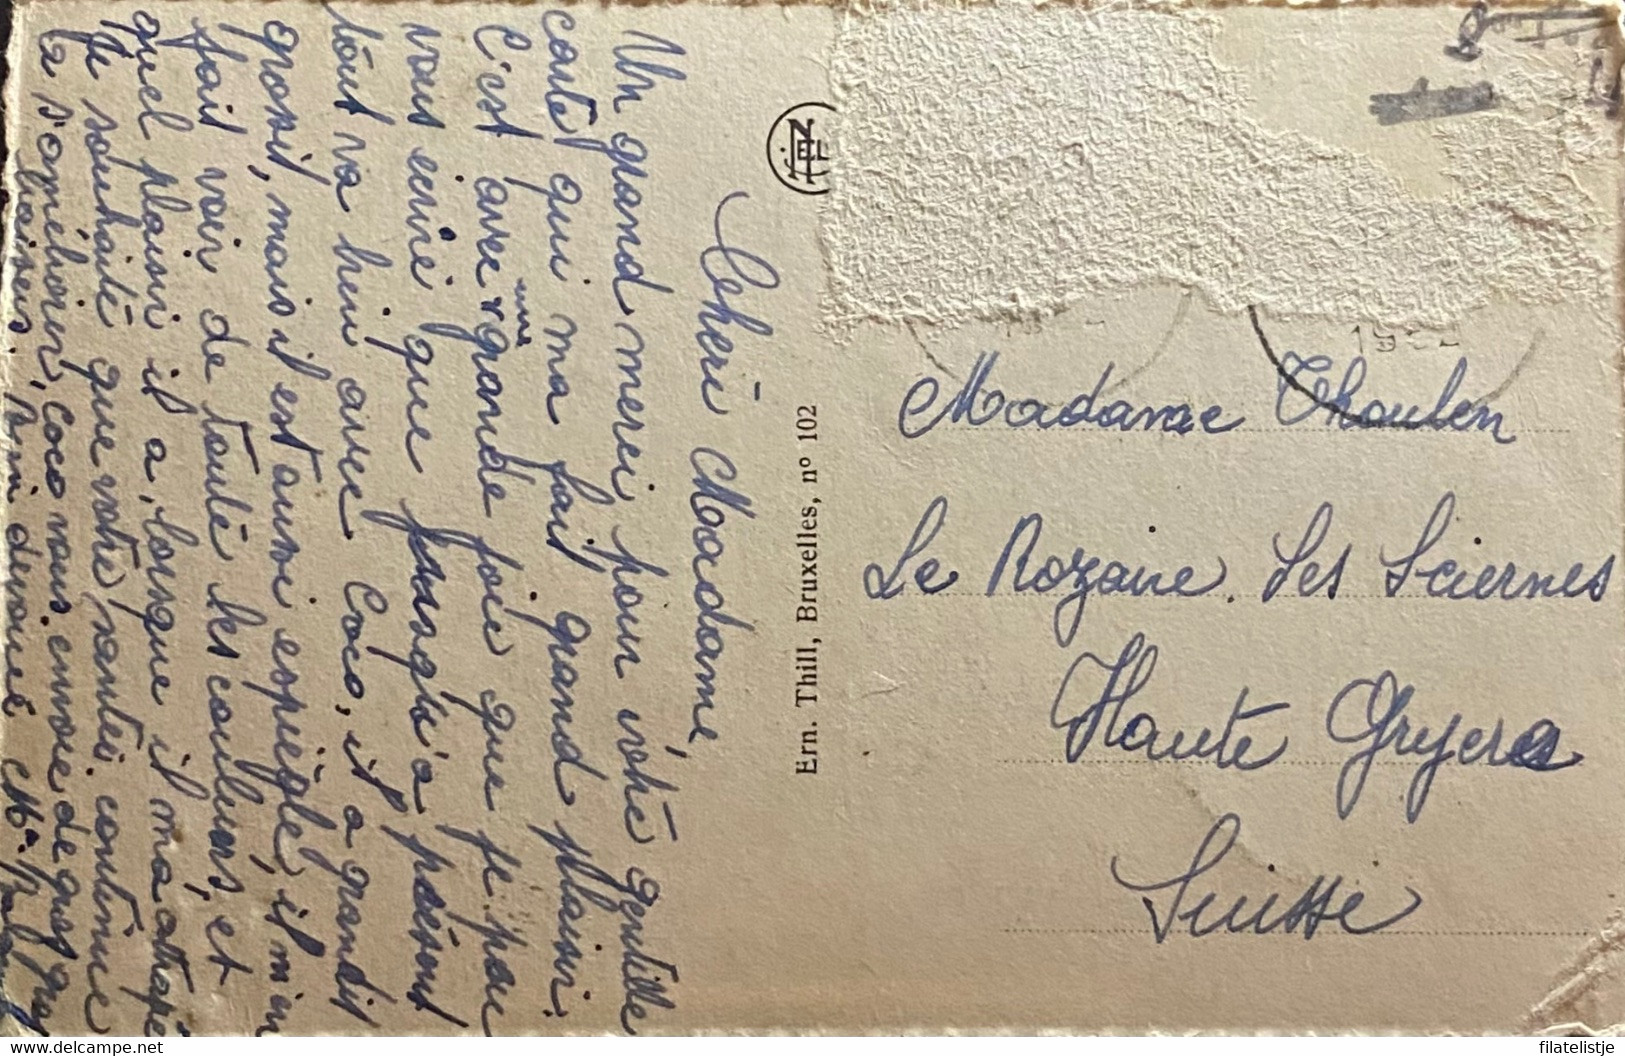 Cheri Madame,
Un grand merci pour votre gentille
carte qui ma fait grand plaisir.
C'est avec une grande joie que je peu
vous ecrire que jusqu'a présent
tout va bien avec Coco, il a grandit
grossit, mais il est aussi espiègle, il m'en
fait voir de toute les couleurs, et
quel plaisir il a, lorsque il m'a attrapé
Je souhaite que votre santé continue
a s'améliorer, Coco vous envoie de gros
baisers. Bien devoué
Ern. Thill, Bruxelles, nº 102
Madame Thoulen
Le Rozaire. Les Sciernes
Haute Gryera
Suisse
www.delcampe.net
filatelistje